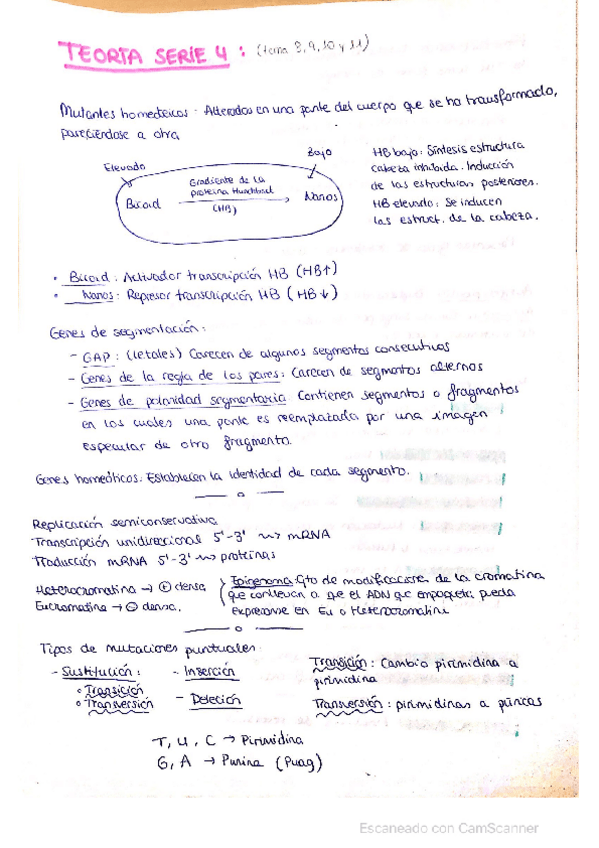 TEORIA SERIE 4 : (tema 8, 9, 10 y 11)
Mutantes homeóticos · Alterados en una parte del cuerpo que se ha transformado,
pareciéndose a otra
Elevado
Bajo
Bicoid
Gradiente de la
proteína Hunchback
(HB)
Nanos
HB bajo: Síntesis estructura
cabeza inhibida. Inducción
de las estructuras posteriores.
HB elevado: Se inducen
las estruct. de la cabeza.
· Bicoid: Activador transcripción HB (HB↑)
· Nanos: Represor transcripción HB (HB↓)
Genes de segmentación:
- GAP: (letales) Carecen de algunos segmentos consecutivos
- Genes de la regla de los pares: Carecen de segmentos alternos
- Genes de polaridad segmentaria: Contienen segmentos o fragmentos
en los cuales una parte es reemplazada por una imagen
especular de otro fragmento.
Genes homeóticos: Establecen la identidad de cada segmento.
Replicación semiconservativa
Transcripción unidireccional 5'-3' ⇝ mRNA
Traducción mRNA 5'-3' ⇝ proteínas
Heterocromatina → ⊕ densa
Eucromatina → ⊖ densa.
Epigenoma: Cjto de modificaciones de la cromatina
que conllevan a que el ADN que empaqueta pueda
expresarse en Eu o Heterocromatina
Tipos de mutaciones puntuales:
- Sustitución:
◦ Transición
◦ Transversión
- Inserción
- Deleción
Transición: Cambio pirimidina a
pirimidina
Transversión: pirimidinas a púricas
T, U, C → Pirimidina
G, A → Purina (Puag)
Escaneado con CamScanner